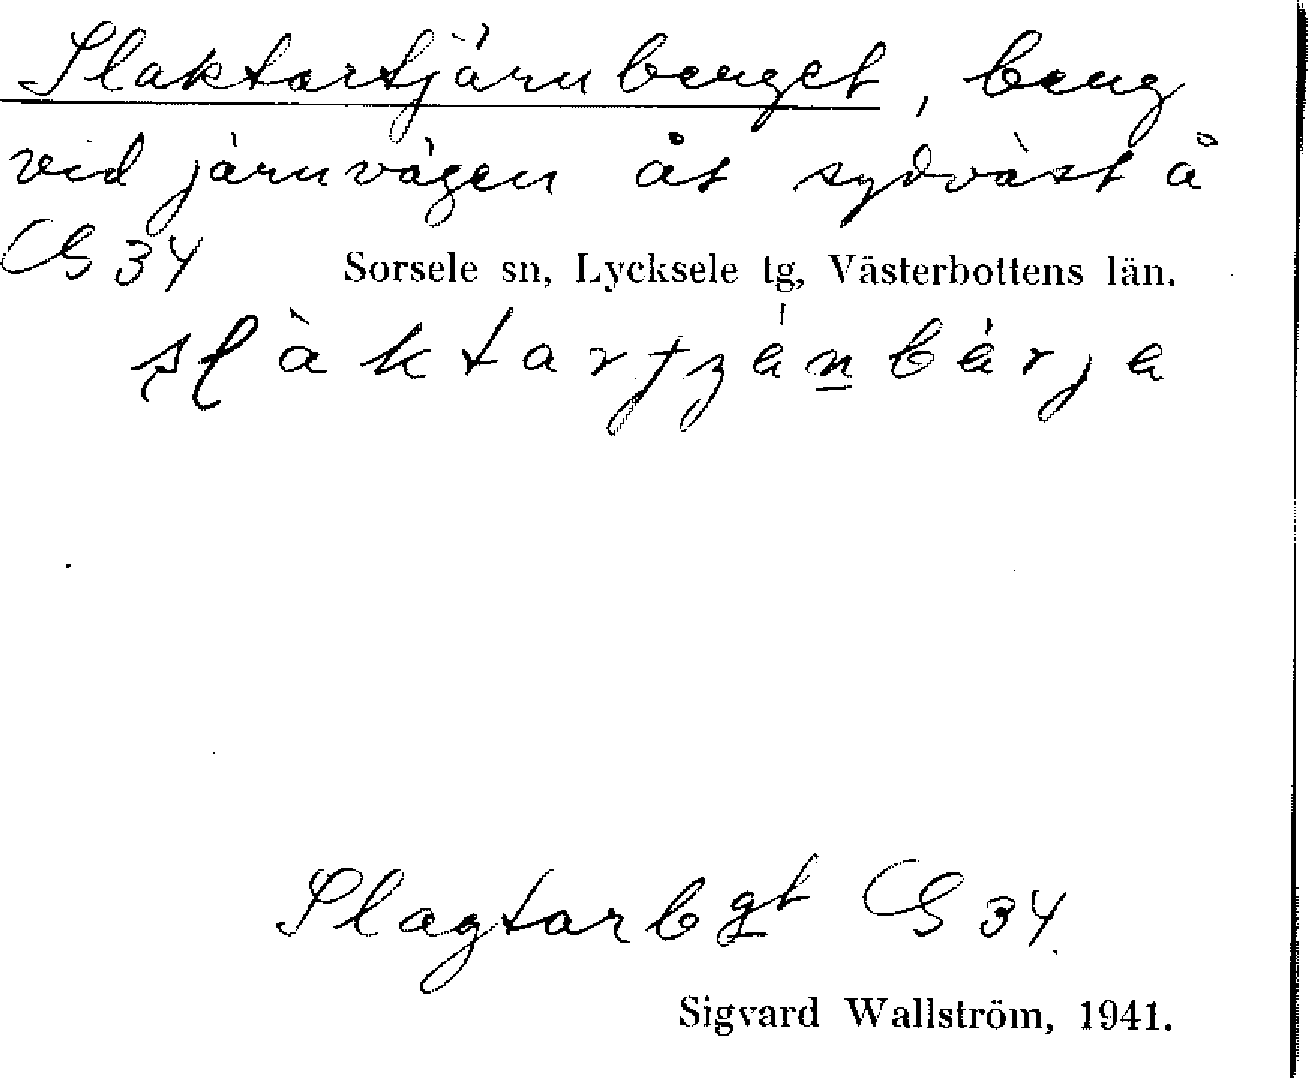 Slaktartjärnberget, berg
vid järnvägen åt sydväst å
GS 34 Sorsele sn, Lycksele tg, Västerbottens län.
Slagtarbgt GS 34
Sigvard Wallström, 1941.